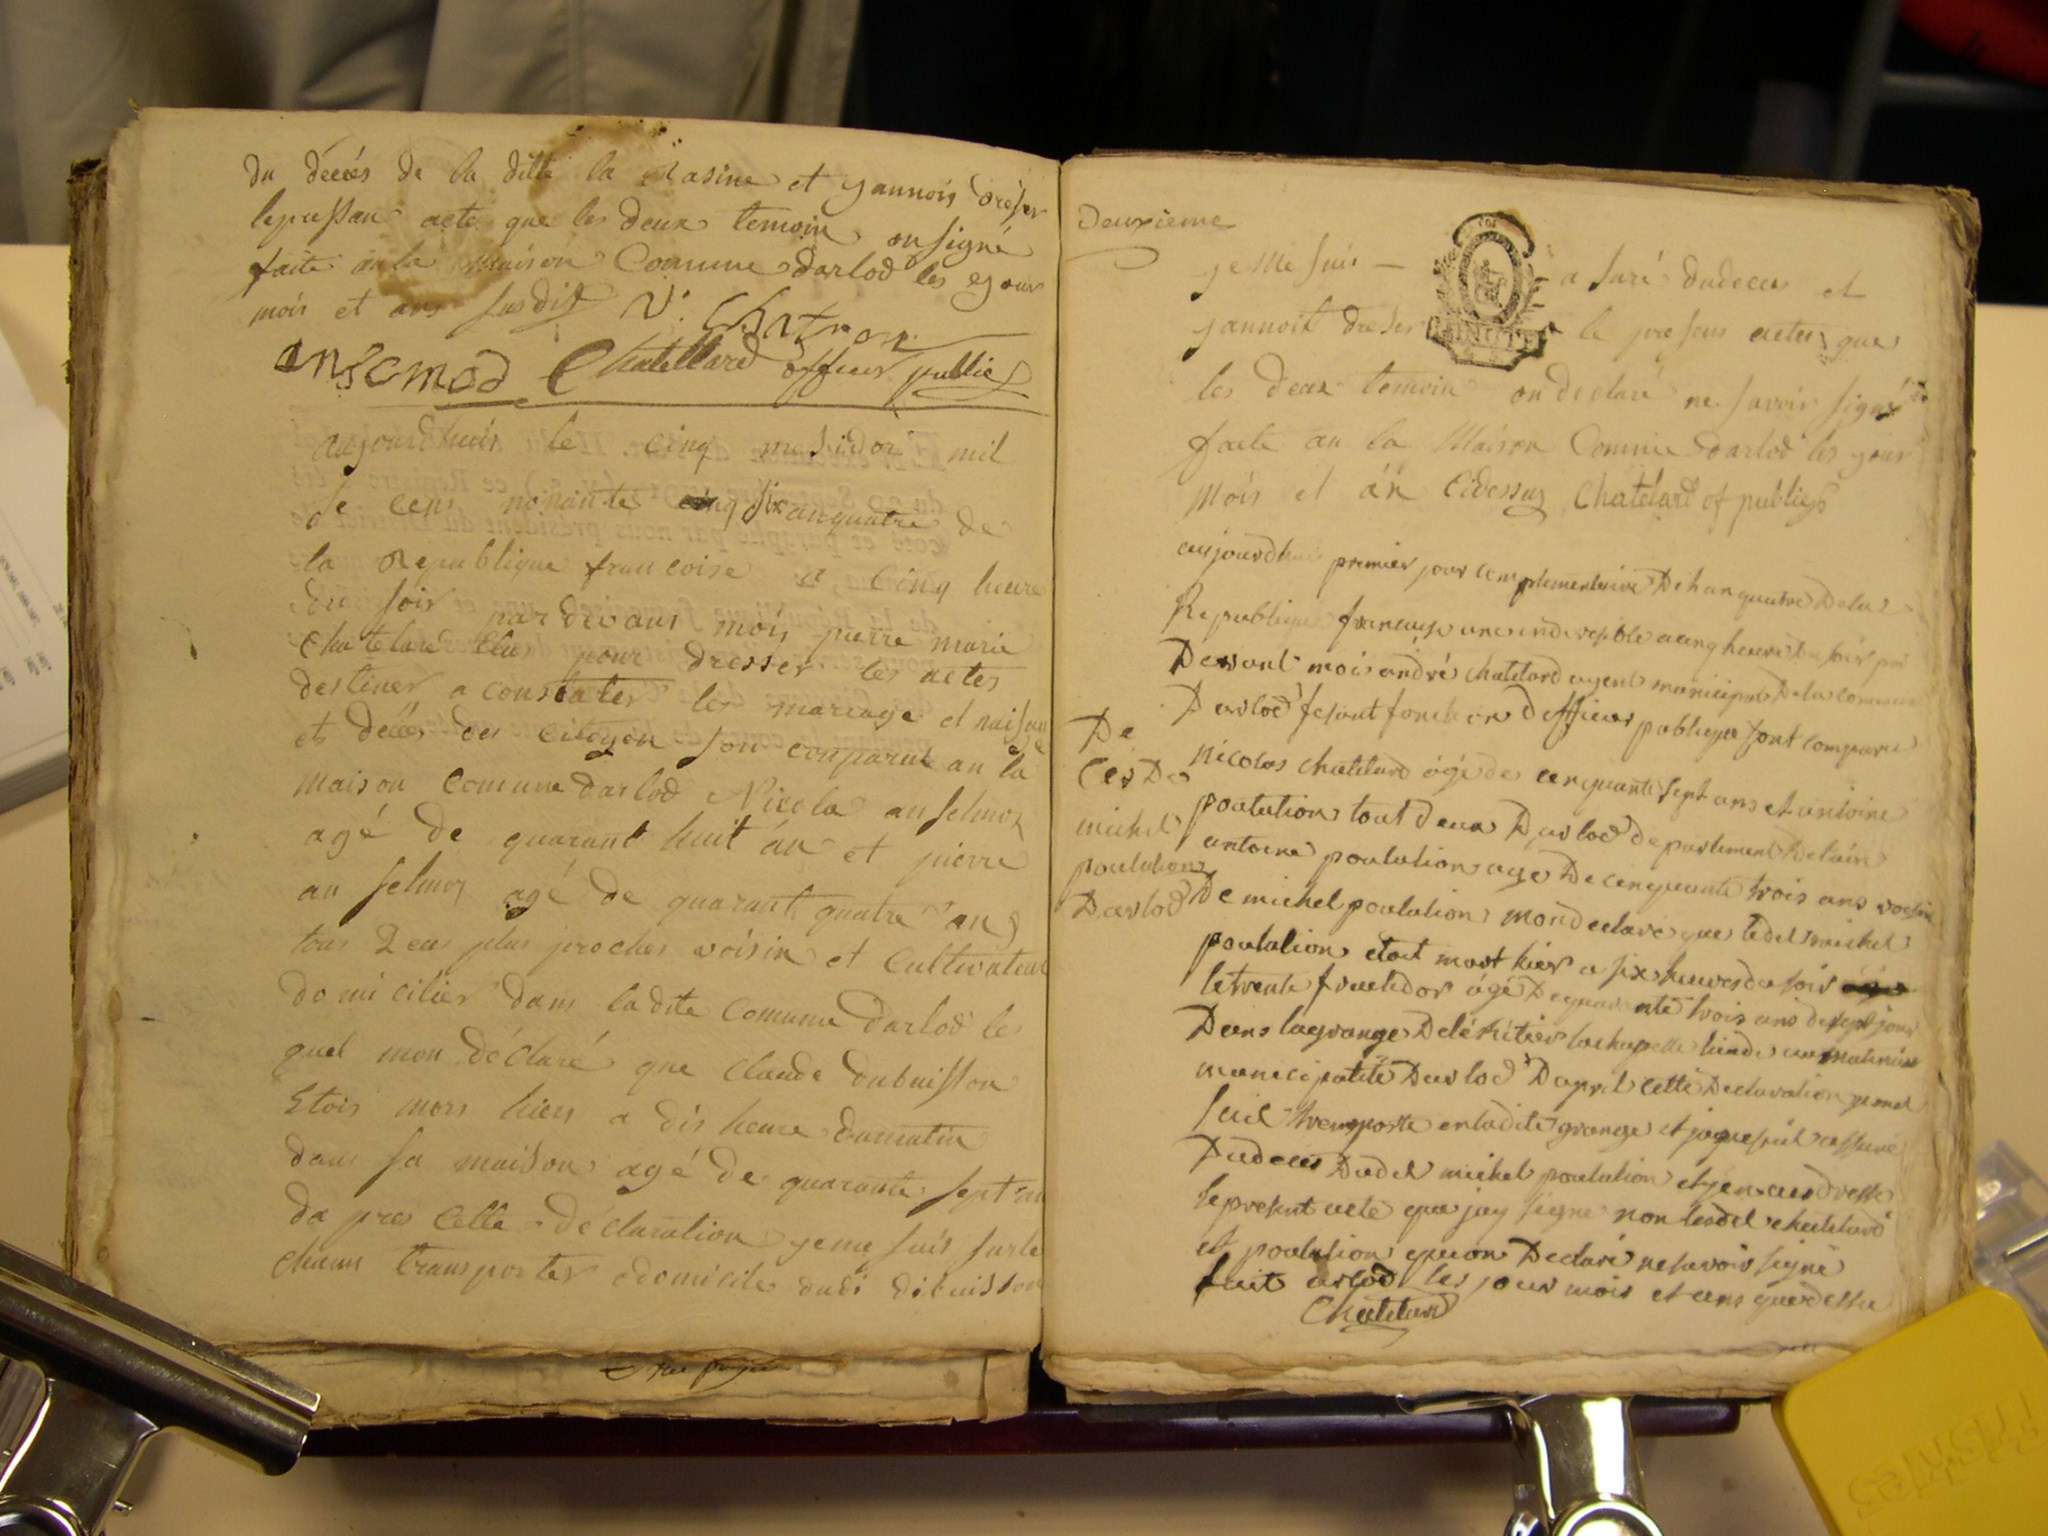 du décés de la ditte la Rasine et yannois dréser
lepressan acte que les deux temoin on signé
faite en la Maison Comune darlod les gour
mois et ans susdit
Chatellard officier public
aujourdhuis le cinq mesidor mil
se cens nonante six anquatre de
la Republique francoise a Cinq heure
du soir pardevans mois pierre marie
Chatelard Elus pour dresser les actes
destiner a constater les mariage et naisance
et décés des citoyen son conparut an la
maison Comune darlod Nicola anselmoz
agé de quarant huit án et pierre
anselmoz agé de quarant quatre ans
tous deus plus proches voisin et Cultivateur
domicilier dans ladite Comune darlod les
quel mon déclaré que Claude dubuisson
Etois mors hiers a dis heure dumatin
dans sa maison agé de quarante sept an
da pres Cette déclaration je me suis surle
chams transporter odomicile dudi dibuisson
Deuxieme
je me suis a suré dudeces et
yannoit dreser le presens actes que
les deux temoin on declaré ne savoir signé
faite an la Maison Comune darlod les jour
Mois et án Cidessuz Chatelard of publics
aujourdhui premier jour complementaire Delanquatre Dela
Republique francaise une indivisible a cinq heure du soir par
Devant mois andré chatelard agent municipal Dela commune
Darlod fesant fonction d officier publique sont comparu
nicolas chatelard ágé de cinquante sept ans et antoine
poulation tout deux Darlod departement Delain
antoine poulation age De cinquante trois ans voisin
De michel poulation mon declaré que ledit michel
poulation etoit mort hier a six heures du soir
letrente fructidor agé Dequarante trois ans
Dans lagrange
municipalité Darlod Dapres cette Declaration je me
suis transporte enladite grange et jeme suis assuré
Dudeces Dudit michel poulation et jen ais dressé
lepresent acte que jay signe non lesdit chatelard
et poulation qui on Declaré nesavoir signé
fait arlod les jour mois et ans que dessu
Chatelard
De
Cés De
michel
poulation
Darlod